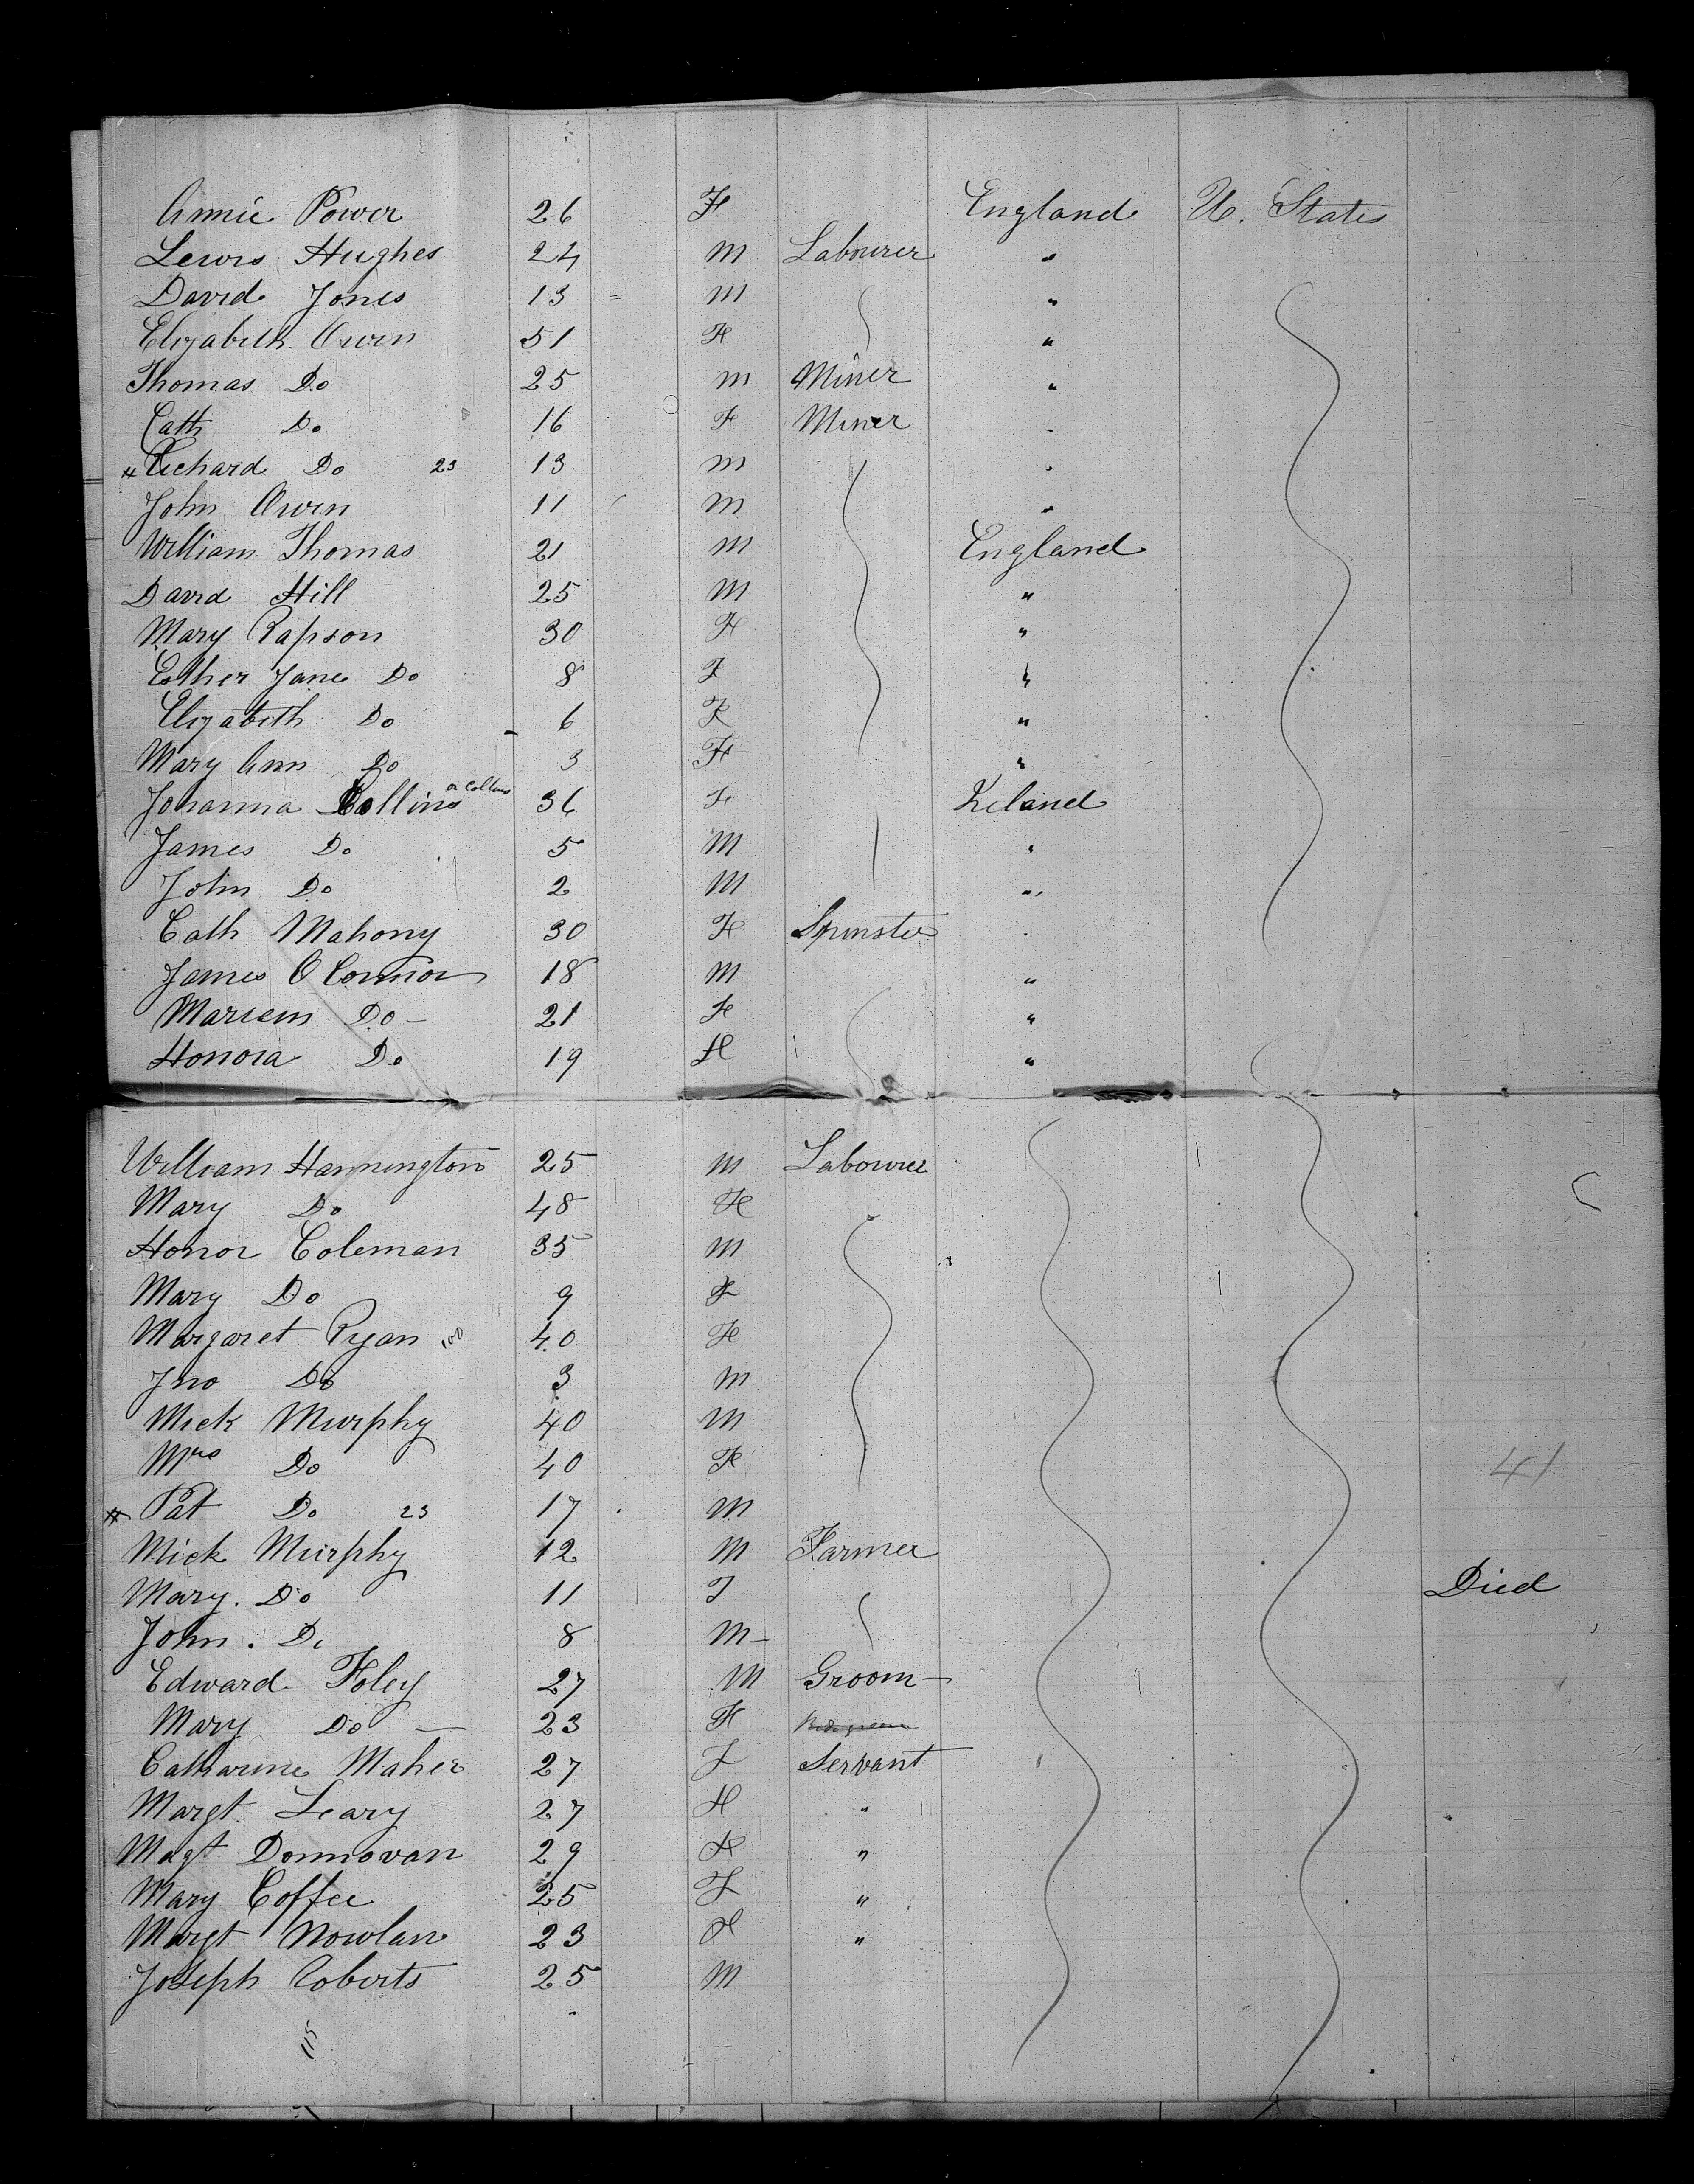 Annie Power 26 F England U. States
Lewis Hughes 24 M Labourer "
David Jones 13 = M "
Elizabeth Owen 51 F "
Thomas Do 25 M Miner "
Cath Do 16 F Miner "
# Richard Do 23 13 M "
John Owen 11 M "
William Thomas 21 M England
David Hill 25 M "
Mary Rapson 30 F "
Esther Jane Do 8 F "
Elizabeth Do 6 F "
Mary Ann Do 3 F "
or Collins
Johanna Collins 36 F Ireland
James Do 5 M "
John Do 2 M "
Cath Mahony 30 F Spinster "
James O Connor 18 M "
Do - 21 F "
Honora Do 19 F "
William Hannington 25 M Labourer
Mary Do 48 F
Honor Coleman 35 M
Mary Do 9 F
Margaret Ryan 100 40 F
Jno Do 3 M
Mick Murphy 40 M
Mrs Do 40 F 41
# Pat Do 23 17 M
Mick Murphy 12 M Farmer
Mary. Do 11 F Died
John. Do 8 M -
Edward Foley 27 M Groom -
Mary Do - 23 F
Catharine Maher 27 F Servant
Margt Leary 27 F "
Magt Donnovan 29 F "
Mary Coffee 25 F "
Margt Nowlan 23 F "
Joseph Roberts 25 M